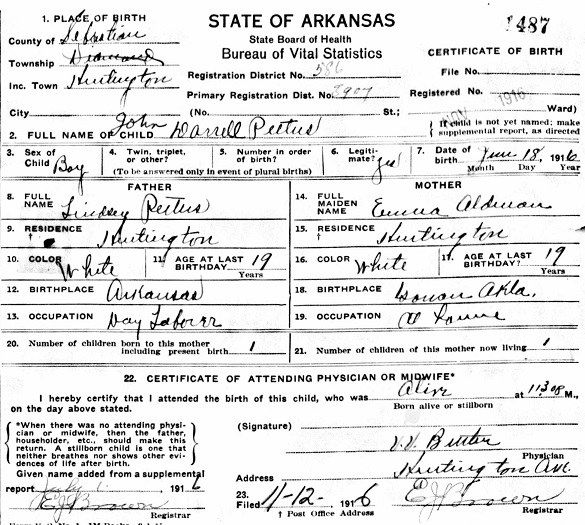 1. PLACE OF BIRTH
STATE OF ARKANSAS
1487
County of Sebastian
State Board of Health
Township Diamond
Bureau of Vital Statistics
CERTIFICATE OF BIRTH
Inc. Town Huntington
Registration District No. 586
File No.
Primary Registration Dist. No. 3907
Registered No.
NOV 1916
City (No. St.; Ward)
2. FULL NAME OF CHILD John Darrell Pettus
{ If child is not yet named; make supplemental report, as directed
3. Sex of Child Boy
4. Twin, triplet, or other?
5. Number in order of birth?
(To be answered only in event of plural births)
6. Legitimate? yes
7. Date of birth June 18, 1916
Month Day Year
FATHER
MOTHER
8. FULL NAME Lindsey Pettus
14. FULL MAIDEN NAME Emma
9. RESIDENCE † Huntington
15. RESIDENCE † Huntington
10. COLOR White
11. AGE AT LAST BIRTHDAY 19 Years
16. COLOR White
17. AGE AT LAST BIRTHDAY? 19 Years
12. BIRTHPLACE Arkansas
18. BIRTHPLACE Okla.
13. OCCUPATION Day Laborer
19. OCCUPATION
20. Number of children born to this mother including present birth 1
21. Number of children of this mother now living 1
22. CERTIFICATE OF ATTENDING PHYSICIAN OR MIDWIFE*
I hereby certify that I attended the birth of this child, who was Alive at 11:30 8 M.,
on the day above stated. Born alive or stillborn
{ *When there was no attending physician or midwife, then the father, householder, etc., should make this return. A stillborn child is one that neither breathes nor shows other evidences of life after birth. }
(Signature)
Physician
Given name added from a supplemental
Address Huntington Ark.
report 1916
23.
Filed 11-12- 1916
E J Brown
Registrar
† Post Office Address
E J Brown
Registrar